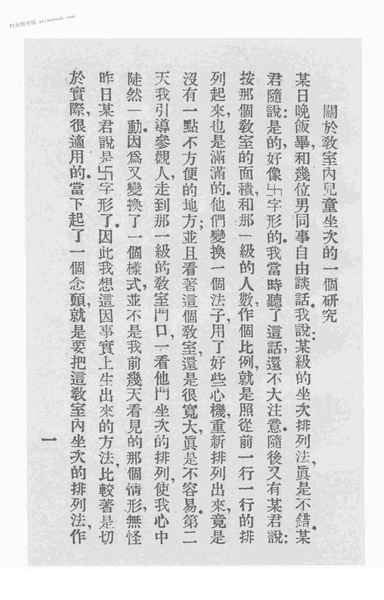 關於敎室內兒童坐次的一個硏究
某日晚飯畢,和幾位男同事自由談話。我說:某級的坐次排列法,眞是不錯。某
君隨說:是的,好像卐字形的。我當時聽了這話,還不大注意。隨後又有某君說:
按那個敎室的面積和那一級的人數,作個比例,就是照從前一行一行的排
列起來,也是滿滿的。他們變換一個法子,用了好些心機,重新排列出來,竟是
沒有一點不方便的地方;並且看著這個敎室,還是很寬大,眞是不容易。第二
天我引導參觀人,走到那一級的敎室門口,一看他們坐次的排列,使我心中
陡然一動。因爲又變換了一個樣式,並不是我前幾天看見的那個情形,無怪
昨日某君說是卐字形了。因此我想這因事實上生出來的方法,比較著是切
於實際,很適用的。當下起了一個念頭,就是要把這敎室內坐次的排列法,作
一